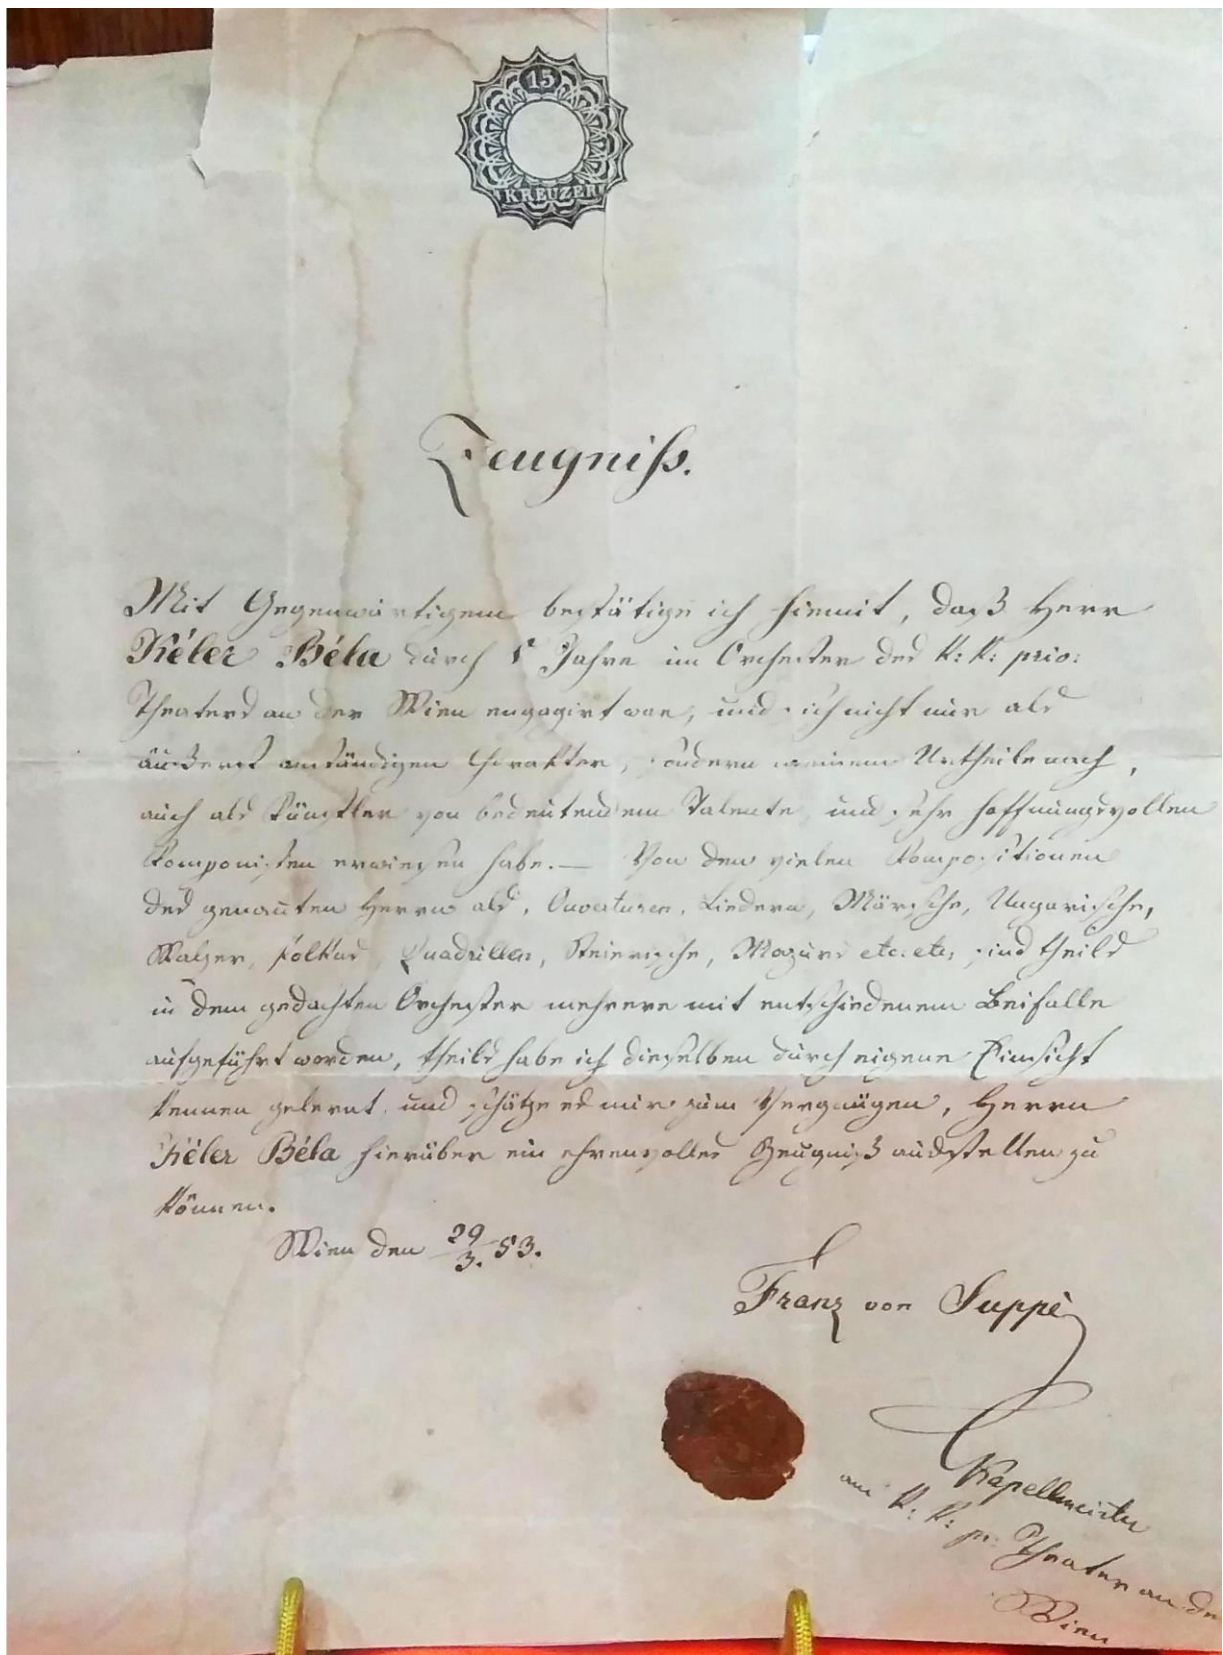 15
KREUZER
Zeugniß.
Mit Gegenwärtigem bestätige ich hiemit, daß Herr
Kéler Béla durch Jahre im Orchester des K: K: priv:
Theaters an der Wien engagirt war, und sich nicht nur als
äußerst anständigen Charakter, sondern meinem Urtheile nach,
auch als Künstler von bedeutendem Talente und sehr hoffnungsvollen
Komponisten erwiesen habe. — Von den vielen Kompositionen
des genannten Herrn als, Ouverturen, Liedern, Märsche, Ungarische,
Walzer, Polkas, Quadrillen, Steierische, Mazurs etc: etc: sind theils
in dem gedachten Orchester mehrere mit entschiedenem Beifalle
aufgeführt worden, theils habe ich dieselben durch eigene Einsicht
kennen gelernt, und schätze es mir zum Vergnügen, Herrn
Kéler Béla hierüber ein ehrenvolles Zeugniß ausstellen zu
können.
Wien den 29/3. 53.
Franz von Suppè
Kapellmeister
am K: K: pr: Theater an der
Wien